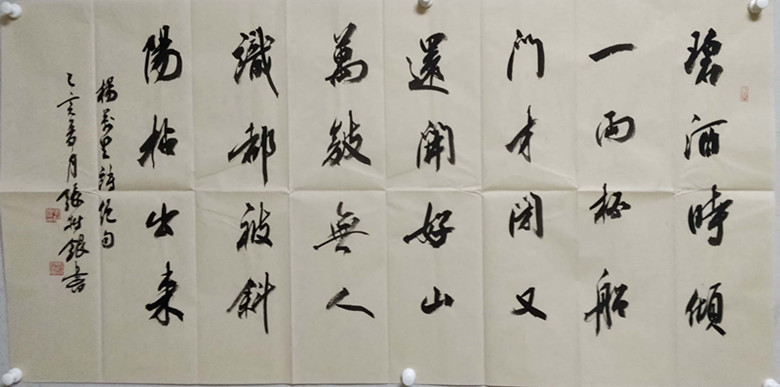 碧酒時傾
一兩桮船
門才閉又
還開好山
萬皺無人
識都被斜
陽拈出來
楊萬里詩絕句
己亥春月張銀書